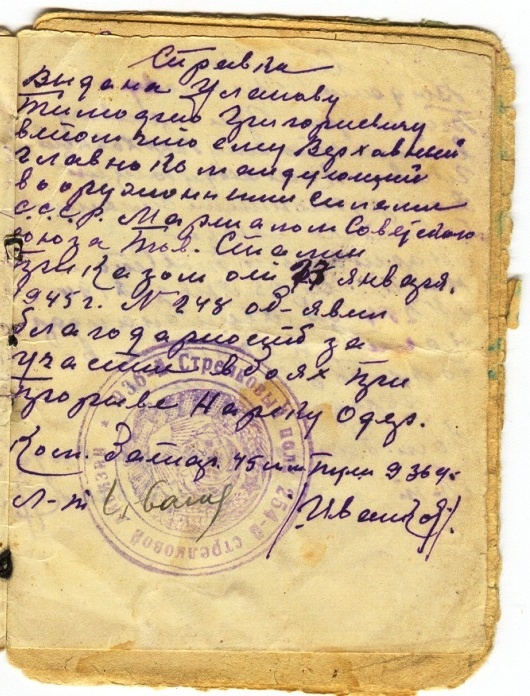 Справка
Выдана Уланову
Тимофею Григориевичу
в том что ему Верховный
главно командующий
вооружонными силами
С.С.С.Р. Маршалом Советского
союза Тов. Сталин
приказом от 23 января.
1945 г. N 248 об-явил
благодарность за
участие в боях при
прорыве На реку Одер.
Ком. 45 мм
Л-т (Иванов).
Стрелковый полк 254-й стрелковой